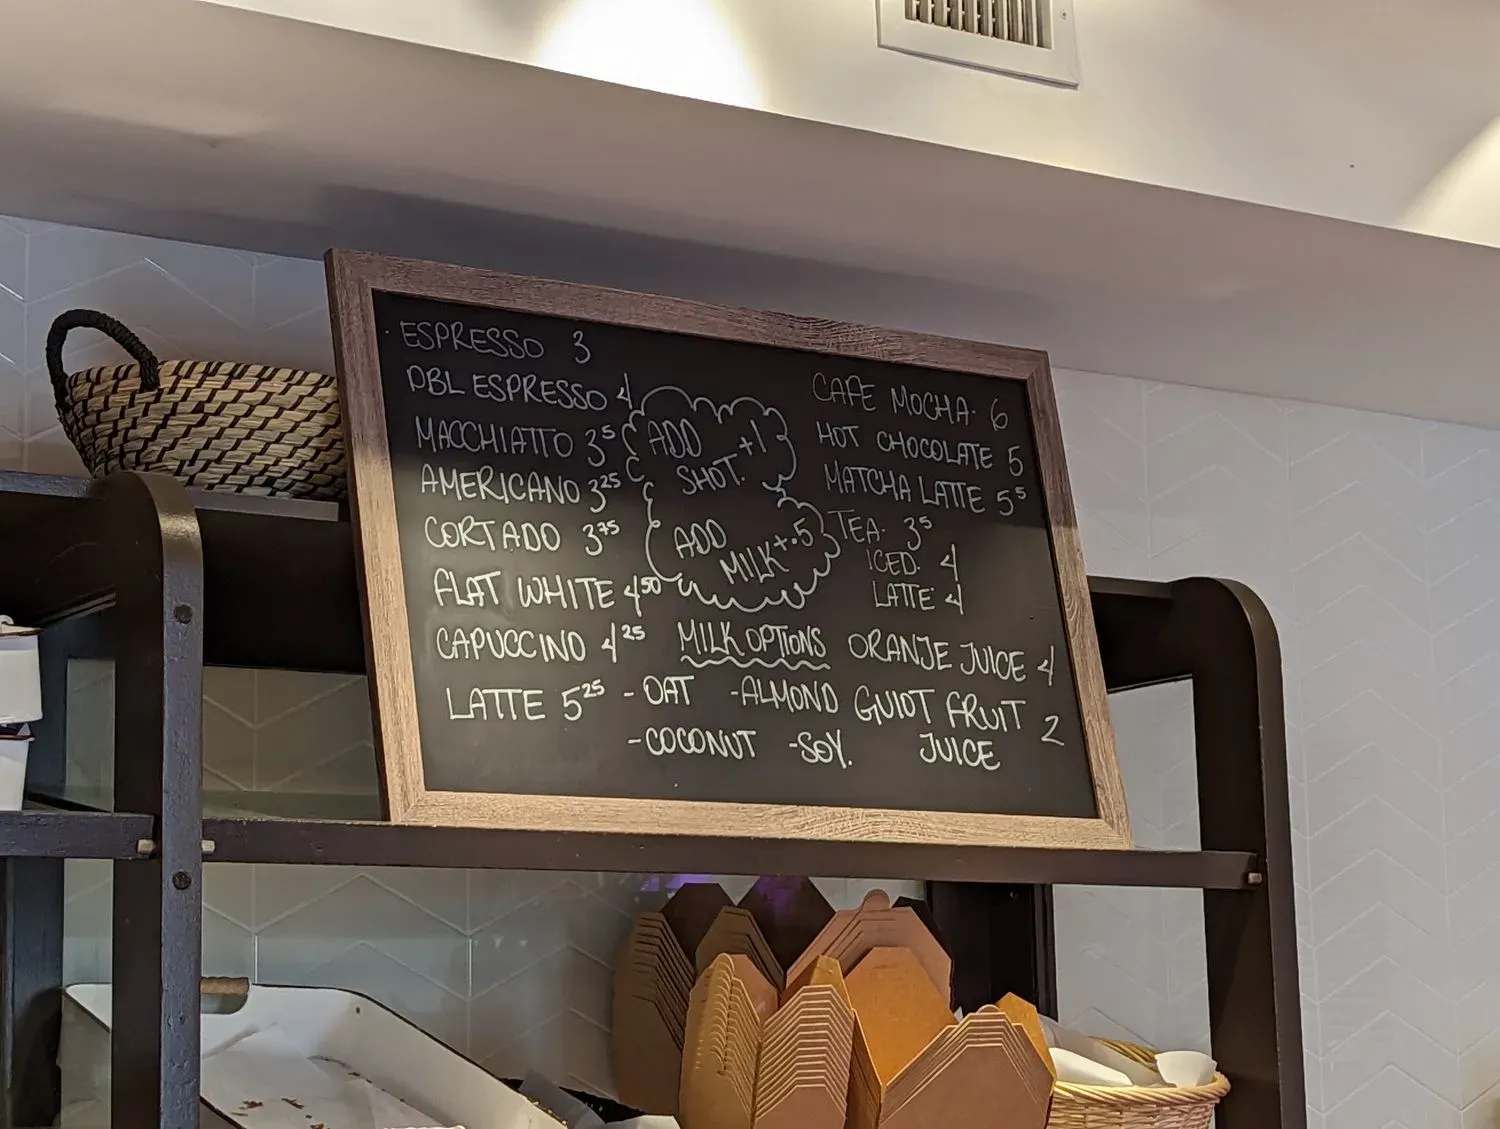 ESPRESSO 3
DBL ESPRESSO 4
MACCHIATTO 3⁵
AMERICANO 3²⁵
CORTADO 3⁷⁵
FLAT WHITE 4⁵⁰
CAPUCCINO 4²⁵
LATTE 5²⁵
ADD
SHOT. +1
ADD
MILK +.5
MILK OPTIONS
- OAT - ALMOND
- COCONUT - SOY.
CAFE MOCHA. 6
HOT CHOCOLATE 5
MATCHA LATTE 5⁵
TEA. 3⁵
ICED. 4
LATTE. 4
ORANJE JUICE 4
GUIOT FRUIT 2
JUICE